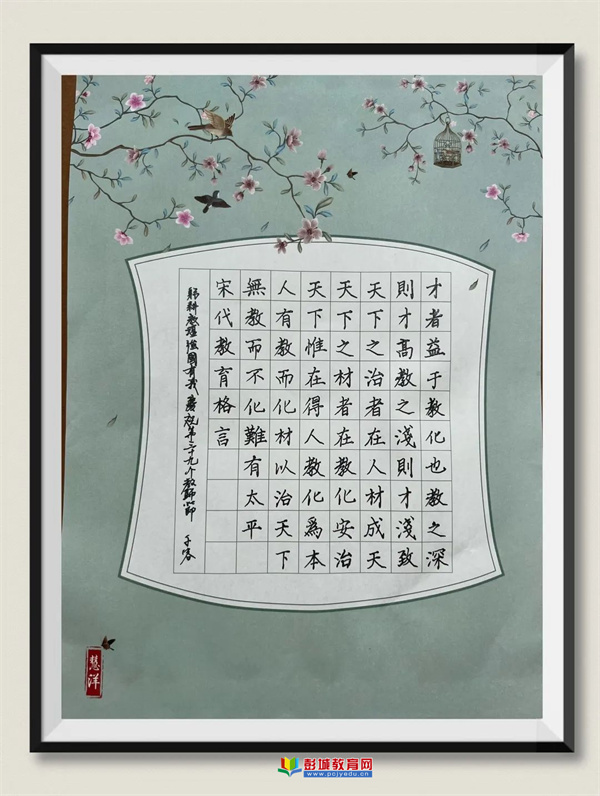 才者益于教化也教之深
則才高教之淺則才淺致
天下之治者在人材成天
天下之材者在教化安治
天下惟在得人教化爲本
人有教而化材以治天下
無教而不化難有太平
宋代教育格言
躬耕教壇強國有我 慶祝第三十九个教師節
慧洋
彭城教育网
www.pcjyedu.cn